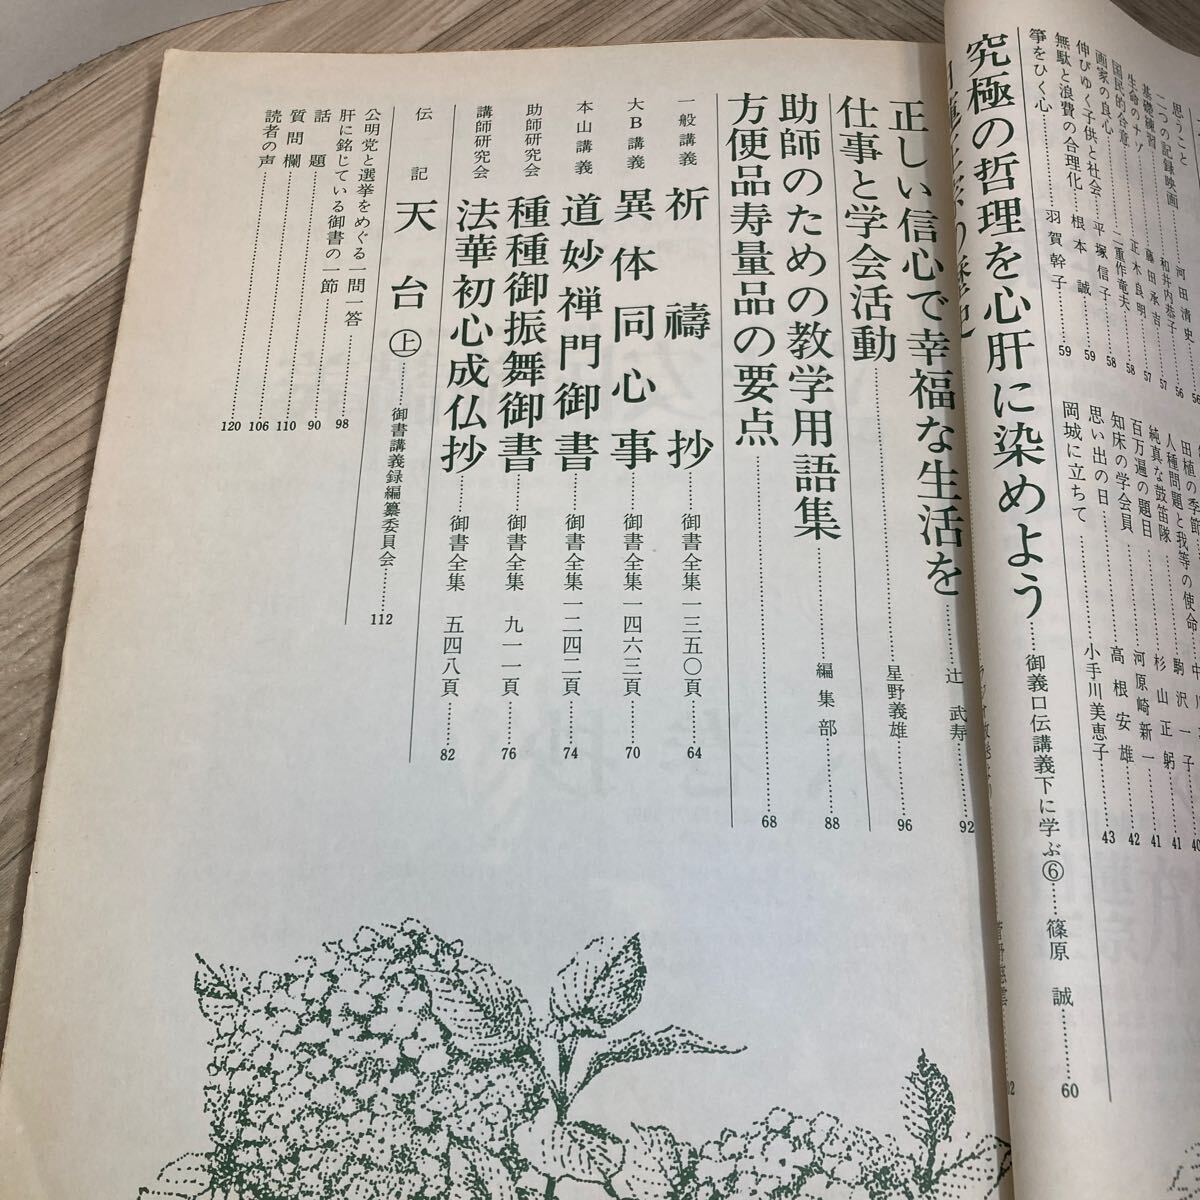 思うこと……河田清史……56
二つの記録映画……和井内恭子……56
基礎練習……藤田承吉……57
生命のナゾ……正木良明……57
国民的合意……二重作竜夫……58
画家の良心……平塚信子……58
伸びゆく子供と社会……根本誠……59
無駄と浪費の合理化……羽賀幹子……59
箏をひく心……
田植の季節……
人種問題と我等の使命……
純真な鼓笛隊……駒沢一子……40
百万遍の題目……杉山正躬……41
知床の学会員……河原崎新一……41
思い出の日……高根安雄……42
岡城に立ちて……小手川美恵子……43
究極の哲理を心肝に染めよう……御義口伝講義下に学ぶ⑥……篠原 誠……60
正しい信心で幸福な生活を……辻 武寿……92
仕事と学会活動……星野義雄……96
助師のための教学用語集……編集部……88
方便品寿量品の要点……68
一般講義 祈禱抄……御書全集一三五〇頁……64
大B講義 異体同心事……御書全集一四六三頁……70
本山講義 道妙禅門御書……御書全集一二四二頁……74
助師研究会 種種御振舞御書……御書全集 九一一頁……76
講師研究会 法華初心成仏抄……御書全集 五四八頁……82
伝記 天台㊤……御書講義録編纂委員会……112
公明党と選挙をめぐる一問一答……98
肝に銘じている御書の一節……90
話題……110
質問欄……106
読者の声……120